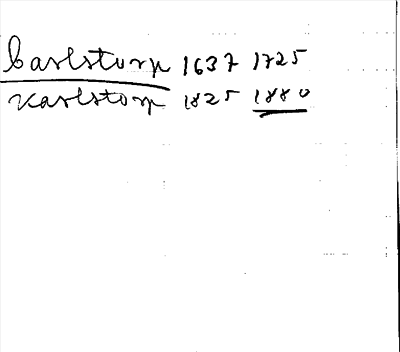 Carlstorp 1637 1725
Karlstorp 1825 1880